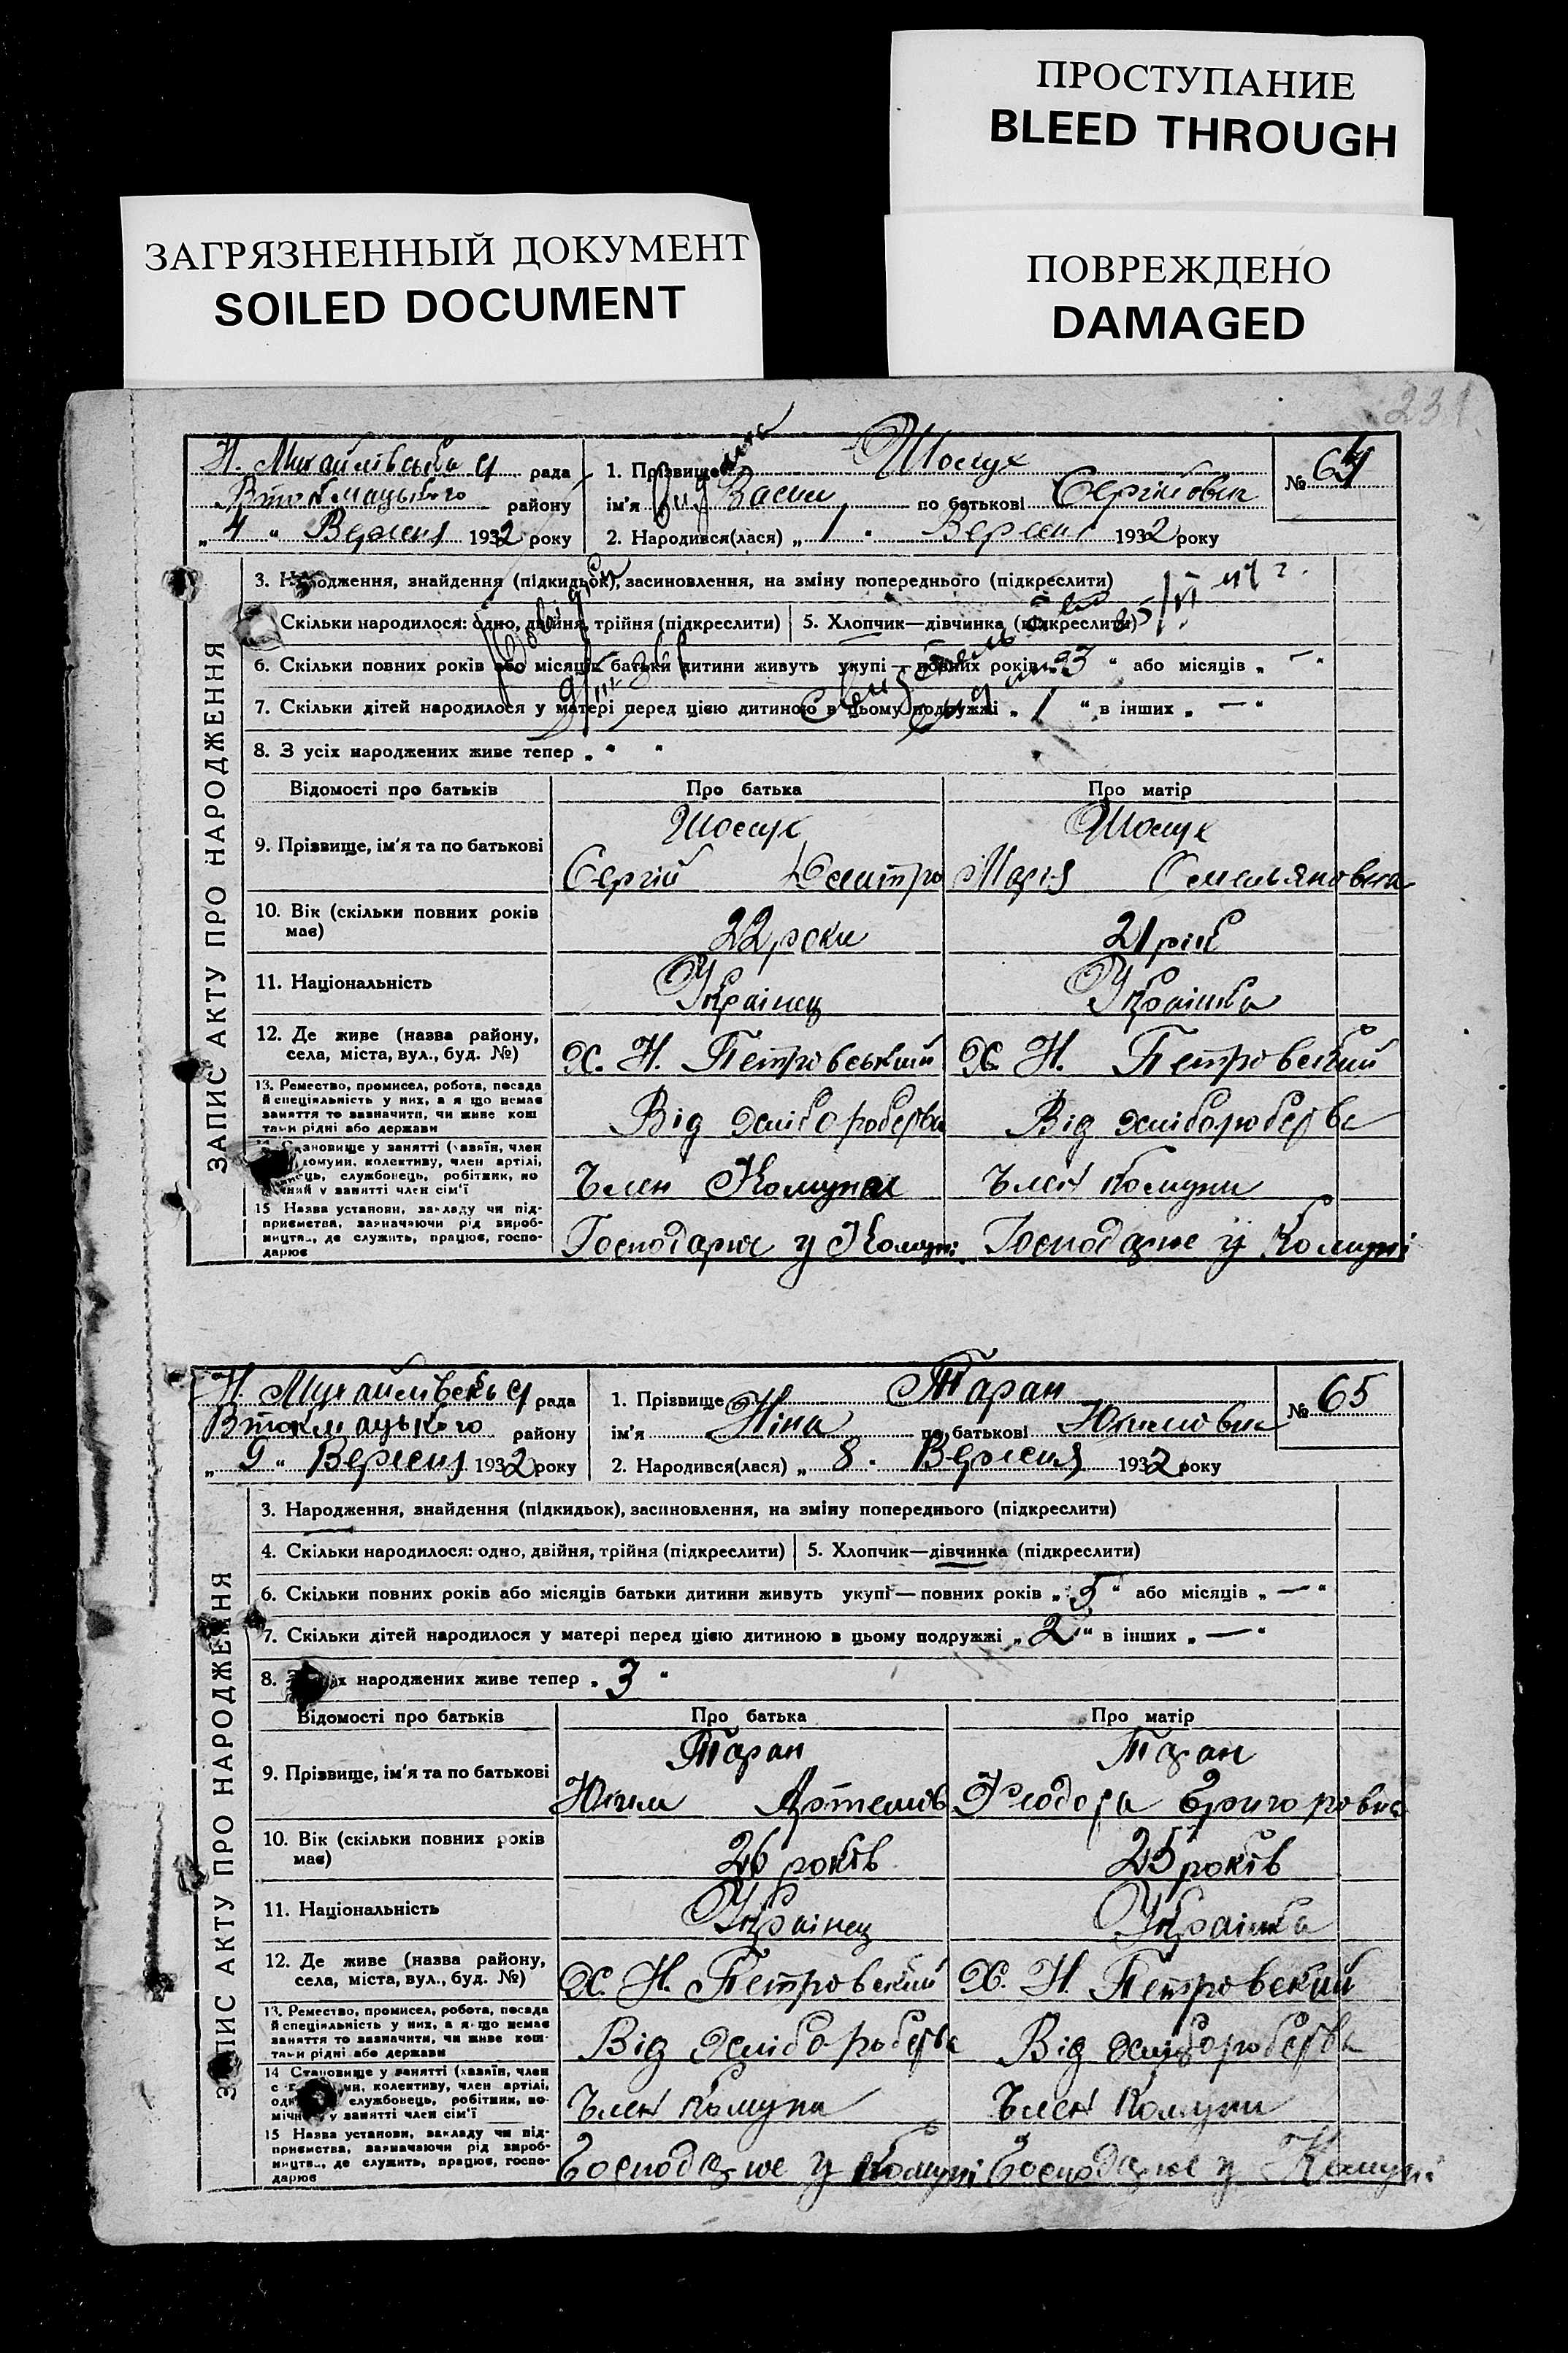 ПРОСТУПАНИЕ
BLEED THROUGH
ЗАГРЯЗНЕННЫЙ ДОКУМЕНТ
SOILED DOCUMENT
ПОВРЕЖДЕНО
DAMAGED
231
Н. Михайлівська рада
Втокмацького району
„ 4 “ Вересня 1932 року
1. Прізвище
ім'я по батькові
2. Народився(лася) „ 1 “ Вересня 1932 року
№ 64
ЗАПИС АКТУ ПРО НАРОДЖЕННЯ
3. Народження, знайдення (підкидьок), засиновлення, на зміну попереднього (підкреслити)
Скільки народилося: одно, двійня, трійня (підкреслити) 5. Хлопчик—дівчинка (підкреслити)
6. Скільки повних років або місяців батьки дитини живуть укупі — повних років „ 3 “ або місяців „ — “
7. Скільки дітей народилося у матері перед цією дитиною в цьому подружжі „ 1 “ в інших „ — “
8. З усіх народжених живе тепер „ “
Відомості про батьків Про батька Про матір
9. Прізвище, ім'я та по батькові
Сергій Дмитро Марія Омельяновна
10. Вік (скільки повних років має) 22 роки 21 рік
11. Національність Українец Українка
12. Де живе (назва району, села, міста, вул., буд. №) Х. Н. Петровський Х. Н. Петровский
13. Ремество, промисел, робота, посада
й спеціяльність у них, а якщо немає
заняття то зазначити, чи живе кош
тами рідні або держави
Від хліборобства Від хліборобства
становище у занятті (хазяїн, член
комуни, колективу, член артілі,
службовець, робітник, по
у занятті член сім'ї
Член Комуни Член комуни
15 Назва установи, закладу чи під-
приємства, зазначаючи рід вироб-
ництва, де служить, працює, госпо-
дарює
Господарює у Комуні Господарює у Комуні
Н. Михайлівська рада
Втокмацького району
„ 9 “ Вересня 1932 року
1. Прізвище Таран
ім'я Ніна по батькові Юхимовна
2. Народився(лася) „ 8 “ Вересня 1932 року
№ 65
ЗАПИС АКТУ ПРО НАРОДЖЕННЯ
3. Народження, знайдення (підкидьок), засиновлення, на зміну попереднього (підкреслити)
4. Скільки народилося: одно, двійня, трійня (підкреслити) 5. Хлопчик—дівчинка (підкреслити)
6. Скільки повних років або місяців батьки дитини живуть укупі — повних років „ 5 “ або місяців „ — “
7. Скільки дітей народилося у матері перед цією дитиною в цьому подружжі „ 2 “ в інших „ — “
8. народжених живе тепер „ 3 “
Відомості про батьків Про батька Про матір
Таран Таран
9. Прізвище, ім'я та по батькові
Юхим Артемів Григоровна
10. Вік (скільки повних років має) 26 років 25 років
11. Національність Українец Українка
12. Де живе (назва району, села, міста, вул., буд. №) Х. Н. Петровский Х. Н. Петровский
13. Ремество, промисел, робота, посада
й спеціяльність у них, а якщо немає
заняття то зазначити, чи живе кош-
тами рідні або держави
Від хліборобства Від хліборобства
14 Становище у занятті (хазяїн, член
колективу, член артілі,
службовець, робітник, по-
у занятті член сім'ї
Член комуни Член Комуни
15 Назва установи, закладу чи під-
приємства, зазначаючи рід вироб-
ництва, де служить, працює, госпо-
дарює
Господарює у Комуні Господарює у Комуні